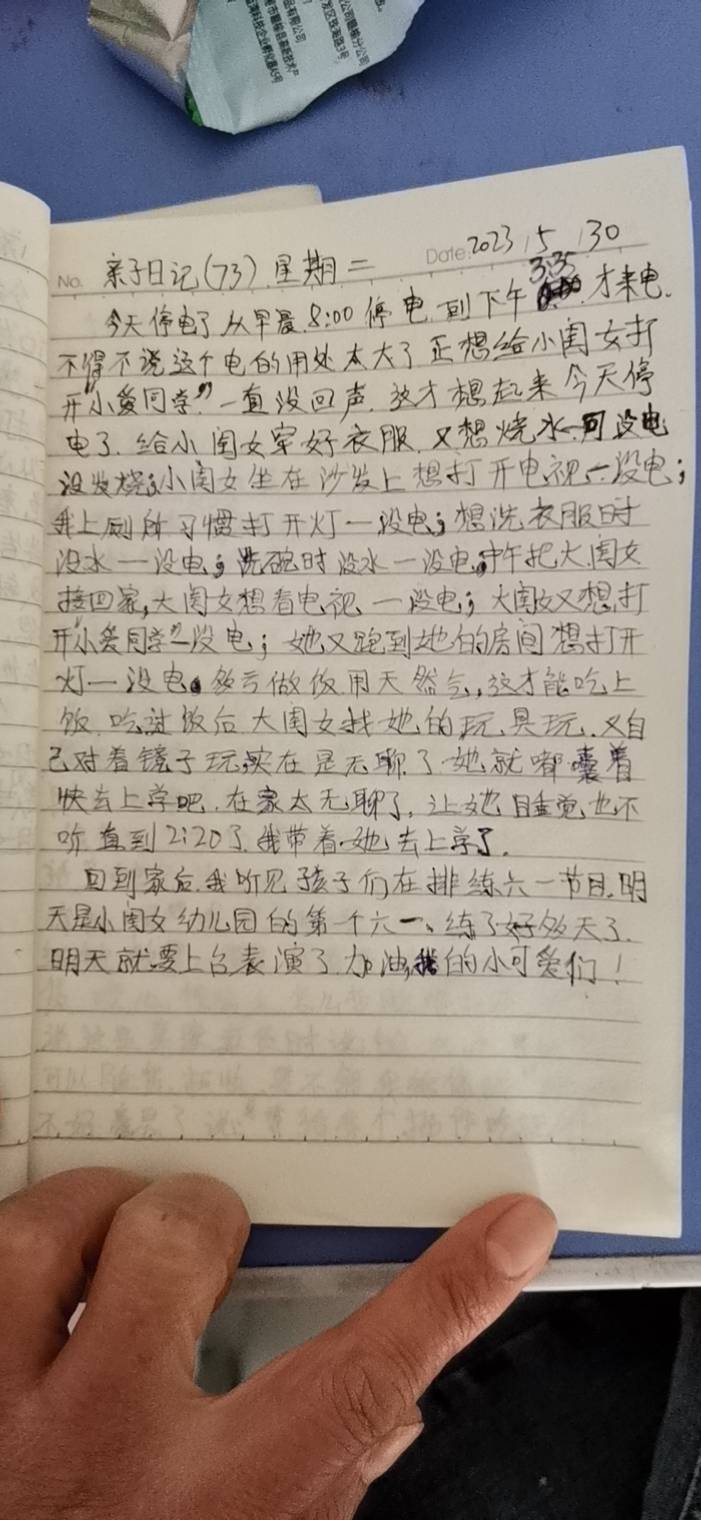 公司赣榆分公司
发区敖海路3号
品有限公司
市赣榆县高新技术产
No. 亲子日记(73) 星期二 Date. 2023 5 30
今天停电了从早晨8:00停电 到下午3:35才来电.
不得不说这个电的用处太大了正想给小闺女打
开"小爱同学"一直没回声.这才想起来今天停
电了.给小闺女穿好衣服.又想烧水一可没电
没发烧;小闺女坐在沙发上想打开电视一没电;
我上厕所习惯打开灯一没电;想洗衣服时
没水一没电;洗碗时没水一没电,中午把大闺女
接回家,大闺女想看电视一没电;大闺女又想打
开"小爱同学"一没电;她又跑到她的房间想打开
灯一没电。多亏做饭用天然气,这才能吃上
饭.吃过饭后大闺女找她的玩具玩.又自
己对着镜子玩,实在是无聊了她就嘟囔着
快去上学吧.在家太无聊了,让她睡觉也不
听直到2:20了.我带着她去上学了.
回到家后.我听见孩子们在排练六一节目.明
天是小闺女幼儿园的第一个六一、练了好多天了.
明天就要上台表演了.加油,我的小可爱们!